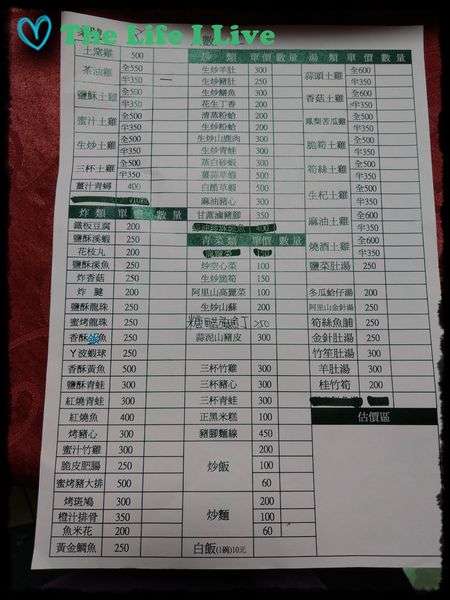 The Life I Live
土窯雞 500
茶油雞 全550 半350 一
鹽酥土雞 全500 半350
蜜汁土雞 全500 半350
生炒土雞 全500 半350
三杯土雞 全500 半350
薑汁青蟳 400
炸類 單價 數量
鐵板豆腐 200
鹽酥溪蝦 250
花枝丸 200
鹽酥溪魚 250
炸香菇 250
炸 腱 200
鹽酥龍珠 250
蜜烤龍珠 250
香酥 魚 250
丫波蝦球 250
香酥黃魚 500
鹽酥青蛙 300
紅燒青蛙 300
紅燒魚 400
烤豬心 300
蜜汁竹雞 300
脆皮肥腸 250
蜜烤豬大排 500
烤斑鳩 300
橙汁排骨 350
魚米花 200
黃金鯛魚 250
炒 類 單價 數量
生炒羊肚 300
生炒豬肚 250
生炒鱔魚 300
花生丁香 200
清蒸粉蛤 200
生炒粉蛤 200
生炒山鹿肉 300
生炒青蛙 300
蒸白砂蝦 300
薑蒜草蝦 500
白醋草蝦 500
麻油豬心 300
甘蔗滷豬腳 350
青菜類 單價 數量
炒空心菜 100
生炒脆筍 150
阿里山高麗菜 100
生炒山蘇 200
糖醋 丁 250
蒜泥山豬皮 300
三杯竹雞 300
三杯豬心 300
三杯青蛙 300
正黑米糕 100
豬腳麵線 450
炒飯 200 100 60
炒麵 200 100 60
白飯(1碗)10元
湯 類 單價 數量
蒜頭土雞 全600 半350
香菇土雞 全600 半350
鳳梨苦瓜雞 全600 半350
脆筍土雞 全500 半350
筍絲土雞 全500 半350
生杞土雞 全500 半350
麻油土雞 全600 半350
燒酒土雞 全600 半350
鹽菜肚湯 250
冬瓜蛤仔湯 200
阿里山金針湯 200
筍絲魚脯 250
金針肚湯 250
竹笙肚湯 300
羊肚湯 300
桂竹筍 200
估價區